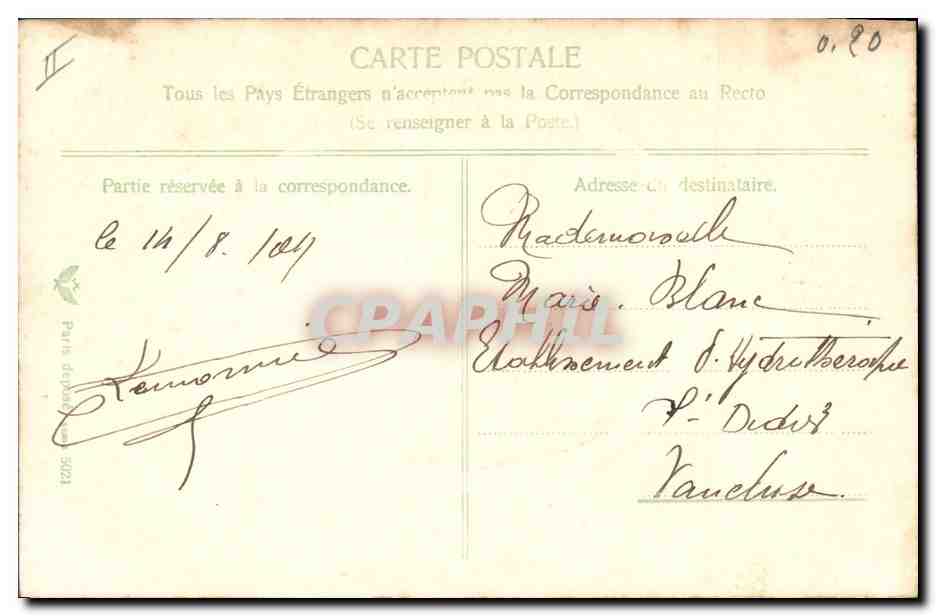 II
0.20
CARTE POSTALE
Tous les Pays Étrangers n'acceptent pas la Correspondance au Recto
(Se renseigner à la Poste.)
Partie réservée à la correspondance.
le 14/8.
Paris déposé 5021
Adresse du destinataire.
Mademoiselle
Marie. Blanc
Etablissement d'Hydrotherapie
St Didier
Vaucluse.
CPAPHIL